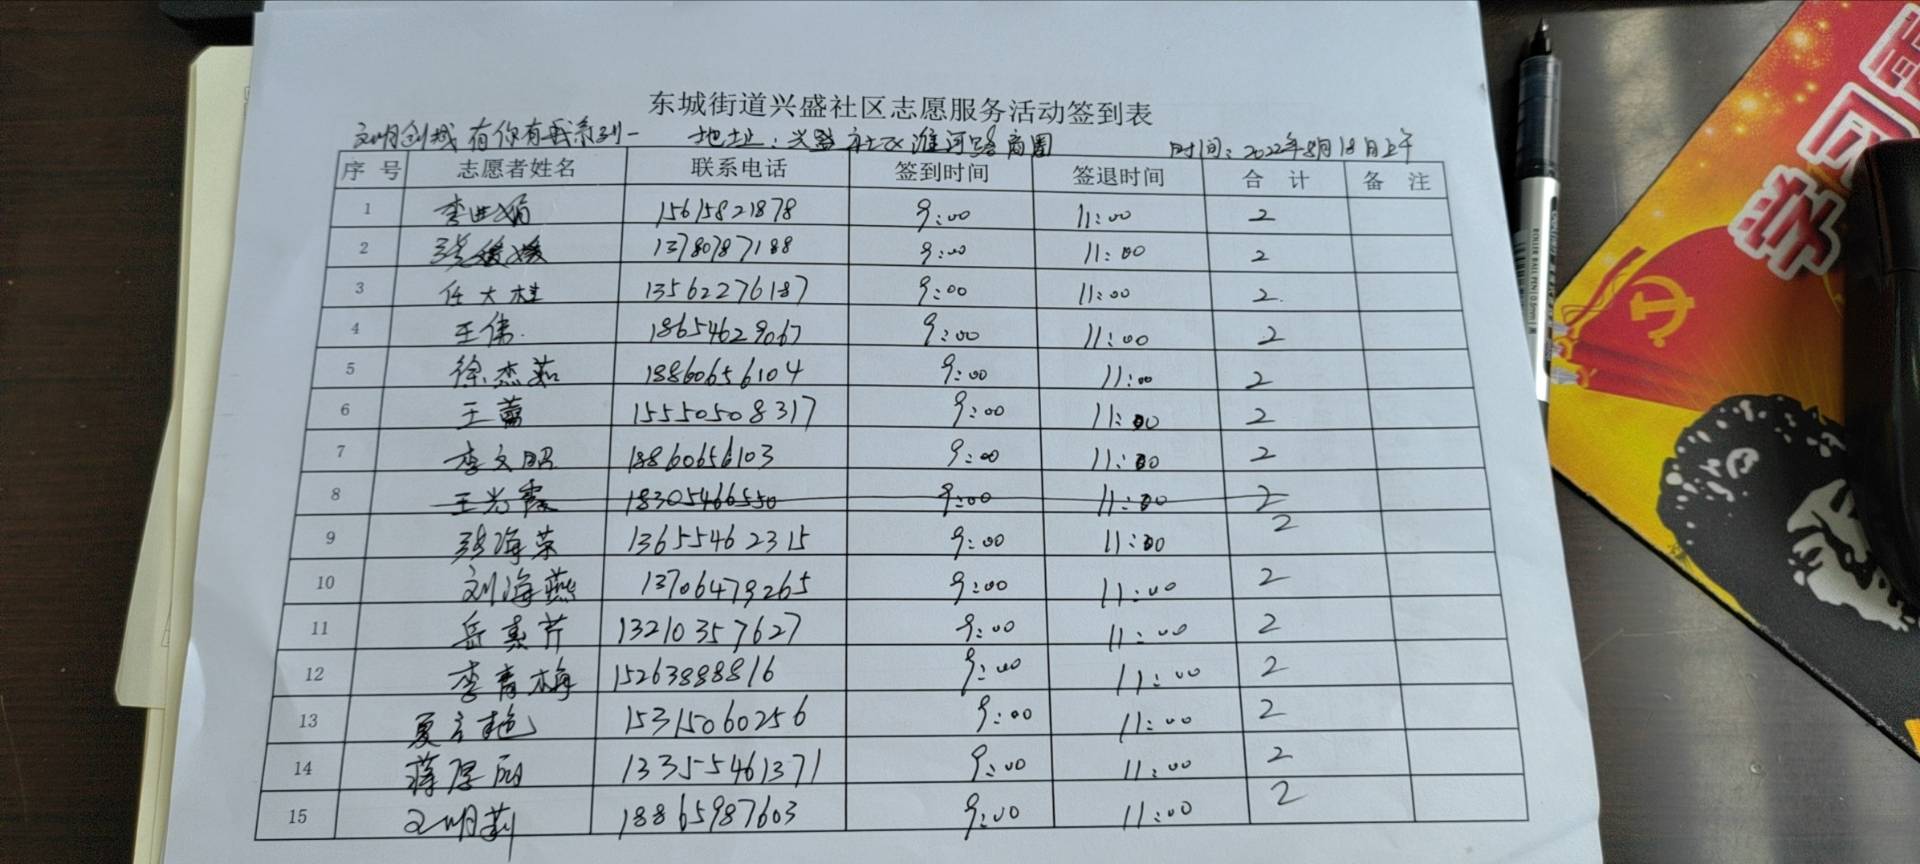 东城街道兴盛社区志愿服务活动签到表
文明创城 有你有我系列一 地址：兴盛社区淮河路商圈 时间：2022年8月18日上午
序 号 志愿者姓名 联系电话 签到时间 签退时间 合 计 备 注
1 李世娟 15615821878 9:00 11:00 2
2 张媛媛 13780787188 9:00 11:00 2
3 任大桂 13562276187 9:00 11:00 2
4 王伟 18654629067 9:00 11:00 2
5 徐杰茹 18860656104 9:00 11:00 2
6 王蕾 15550508317 9:00 11:00 2
7 李文昭 18860656103 9:00 11:00 2
8 王光霞 18305466550 9:00 11:00 2
9 张海荣 13655462315 9:00 11:00 2
10 刘海燕 13706479265 9:00 11:00 2
11 岳素芹 13210357627 9:00 11:00 2
12 李青梅 15263888816 9:00 11:00 2
13 夏立艳 15315060256 9:00 11:00 2
14 蒋厚丽 13355461371 9:00 11:00 2
15 文明莉 18865987603 9:00 11:00 2
学习